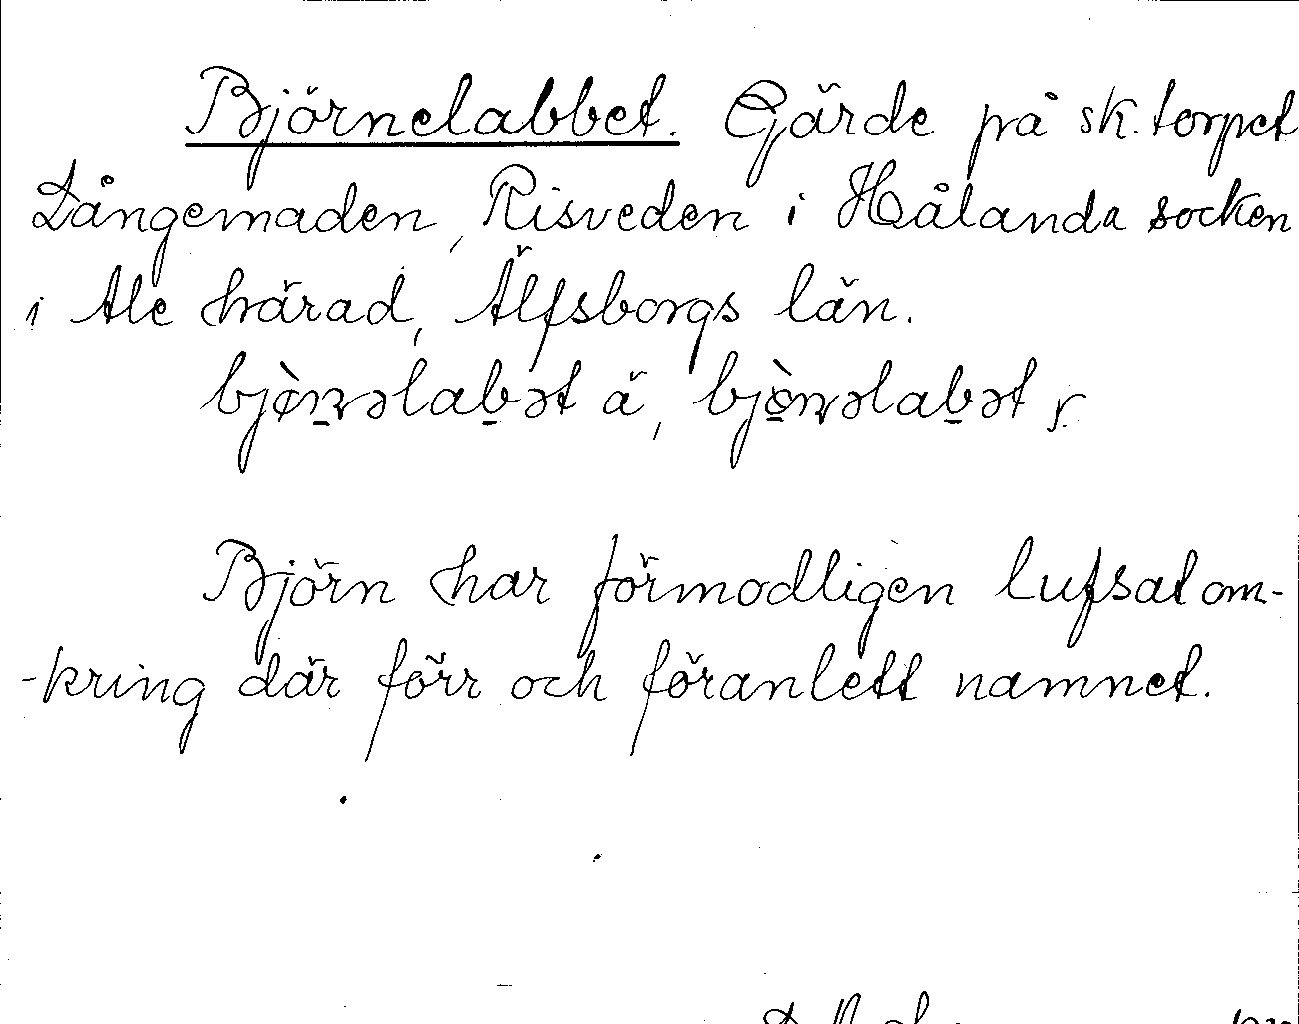 Björnelabbet. Gärde på sk. torpet
Långemaden, Risveden i Hålanda socken
i Ale härad, Älfsborgs län.
ä, y.
Björn har förmodligen lufsat om-
-kring där förr och föranlett namnet.